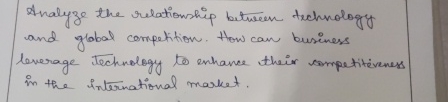 Analyze the relationship between technology
and global competition. How can business
leverage Technology to enhance their competitiveness
in the international market.